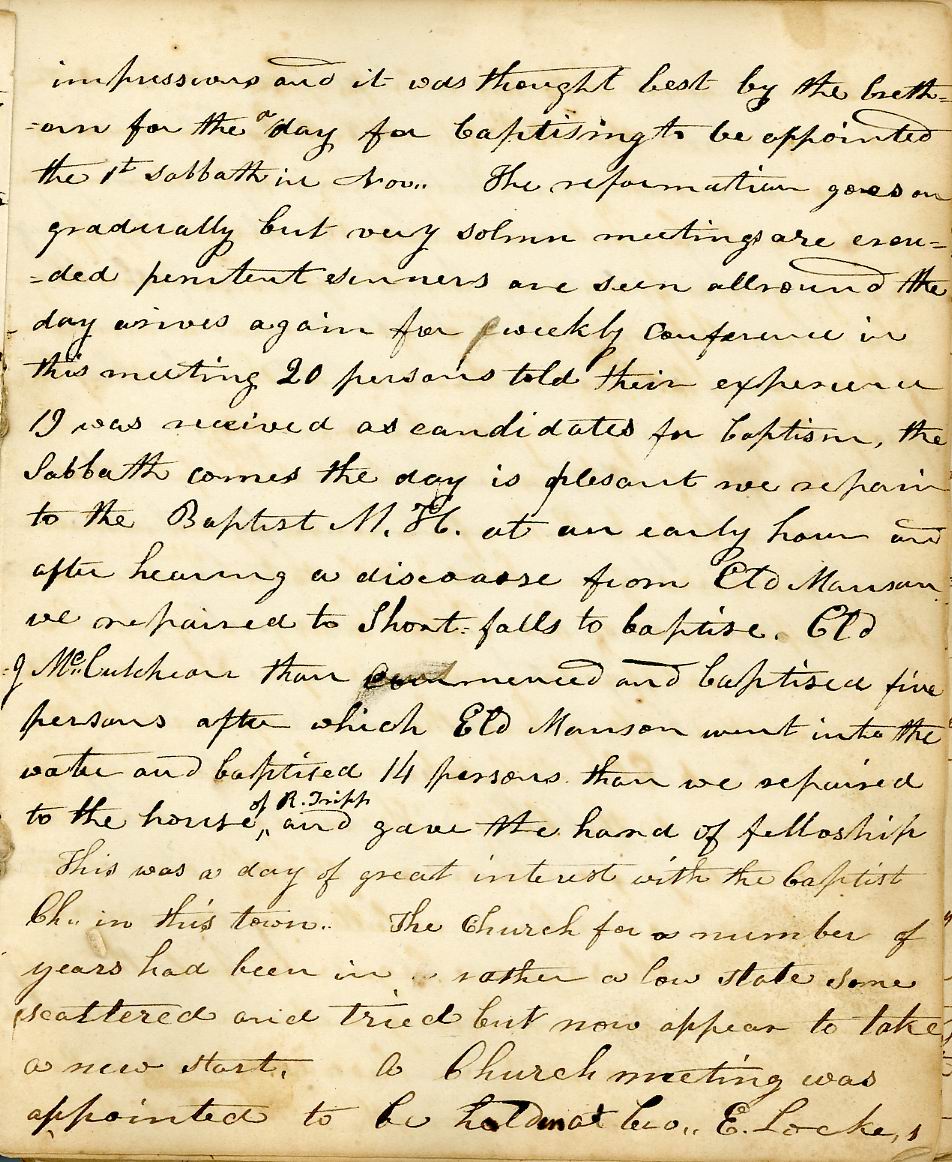 impressions and it was thought best by the breth=
=ern for the a day for baptising to be appointed
the 1st Sabbath in Nov.. The reformation goes on
gradually but very solmn meetings are crou=
=ded penitent sinners are seen allround the
day arives again for weekly Conference in
this meeting 20 persons told their experience
19 was received as candidates for baptism, the
Sabbath comes the day is plesant we repair
to the Baptist M. H. at an early hour and
after hearing a discoarse from Eld Manson
we repaired to Short=falls to baptise. Eld
Mc.Cutcheon than commenced and baptised five
persons after which Eld Manson went into the
water and baptised 14 persons than we repaired
to the house, of R. Tripp and gave the hand of felloship
This was a day of great interest with the baptist
Ch.. in this town.. The Church for a number of
years had been in .. rather a low state some
scattered and tried but now appear to take
a new start. A Church meeting was
appointed to be at bro.. E. Locke,s